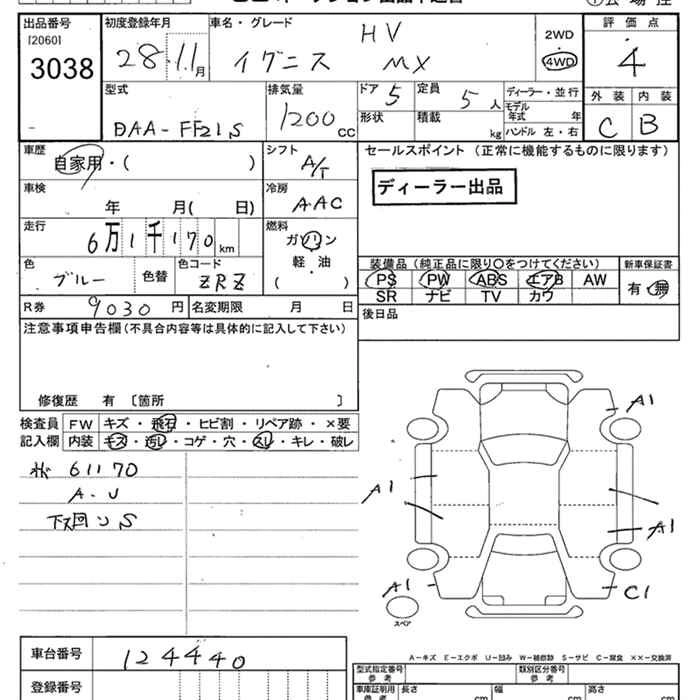 出品番号
[2060]
3038
初度登録年月
28.11月
車名・グレード
HV
イグニス MX
2WD
4WD
評価点
4
型式
DAA-FF21S
排気量
1200cc
ドア 5
定員 5人
形状
積載 kg
ディーラー・並行
モデル年式 年
ハンドル 左・右
外装 内装
C B
車歴
自家用・( )
シフト
A/T
車検
年 月( 日)
冷房
AAC
走行
6万1千170km
燃料
ガソリン
軽・油
( )
色
ブルー
色替
色コード
ZRZ
R券 9030円
名変期限 月 日
セールスポイント (正常に機能するものに限ります)
ディーラー出品
装備品(純正品に限り○をつけてください)
PS PW ABS エアB AW
SR ナビ TV カワ
新車保証書
有・無
後日品
注意事項申告欄(不具合内容等は具体的に記入して下さい)
修復歴 有 〔箇所 〕
検査員記入欄
FW キズ・飛石・ヒビ割・リペア跡・×要
内装 キズ・汚レ・コゲ・穴・スレ・キレ・破レ
61170
A.U
下ス回りS
A1
A1
A1
A1
C1
スペア
A-キズ E-エクボ U-凹み W-補修跡 S-サビ C-腐食 ××-交換済
車台番号 124440
登録番号
型式指定番号 参考
類別区分番号 参考
車庫証明用 参考
長さ cm
幅 cm
高さ cm